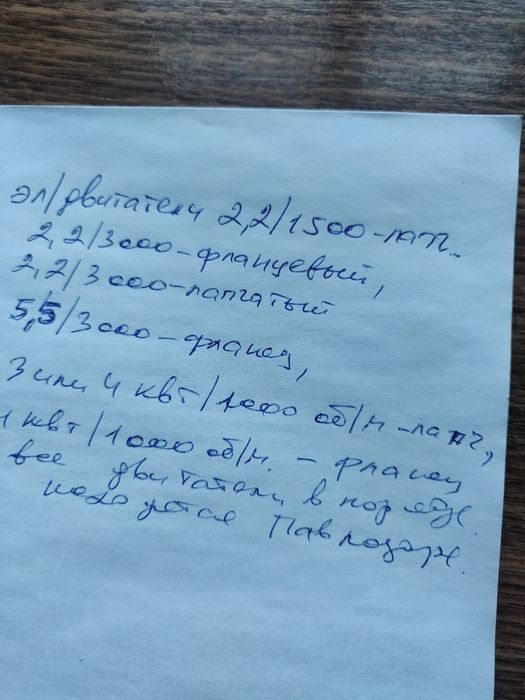 эл/двигатели 2,2/1500-лап..
2,2/3000-фланцевый,
2,2/3000-лапчатый
5,5/3000-фланец,
3 или 4 квт/1000 об/м-лапч,
1 квт/1000 об/м. - фланец
все двигатели в порядке.
находятся Павлодаре.